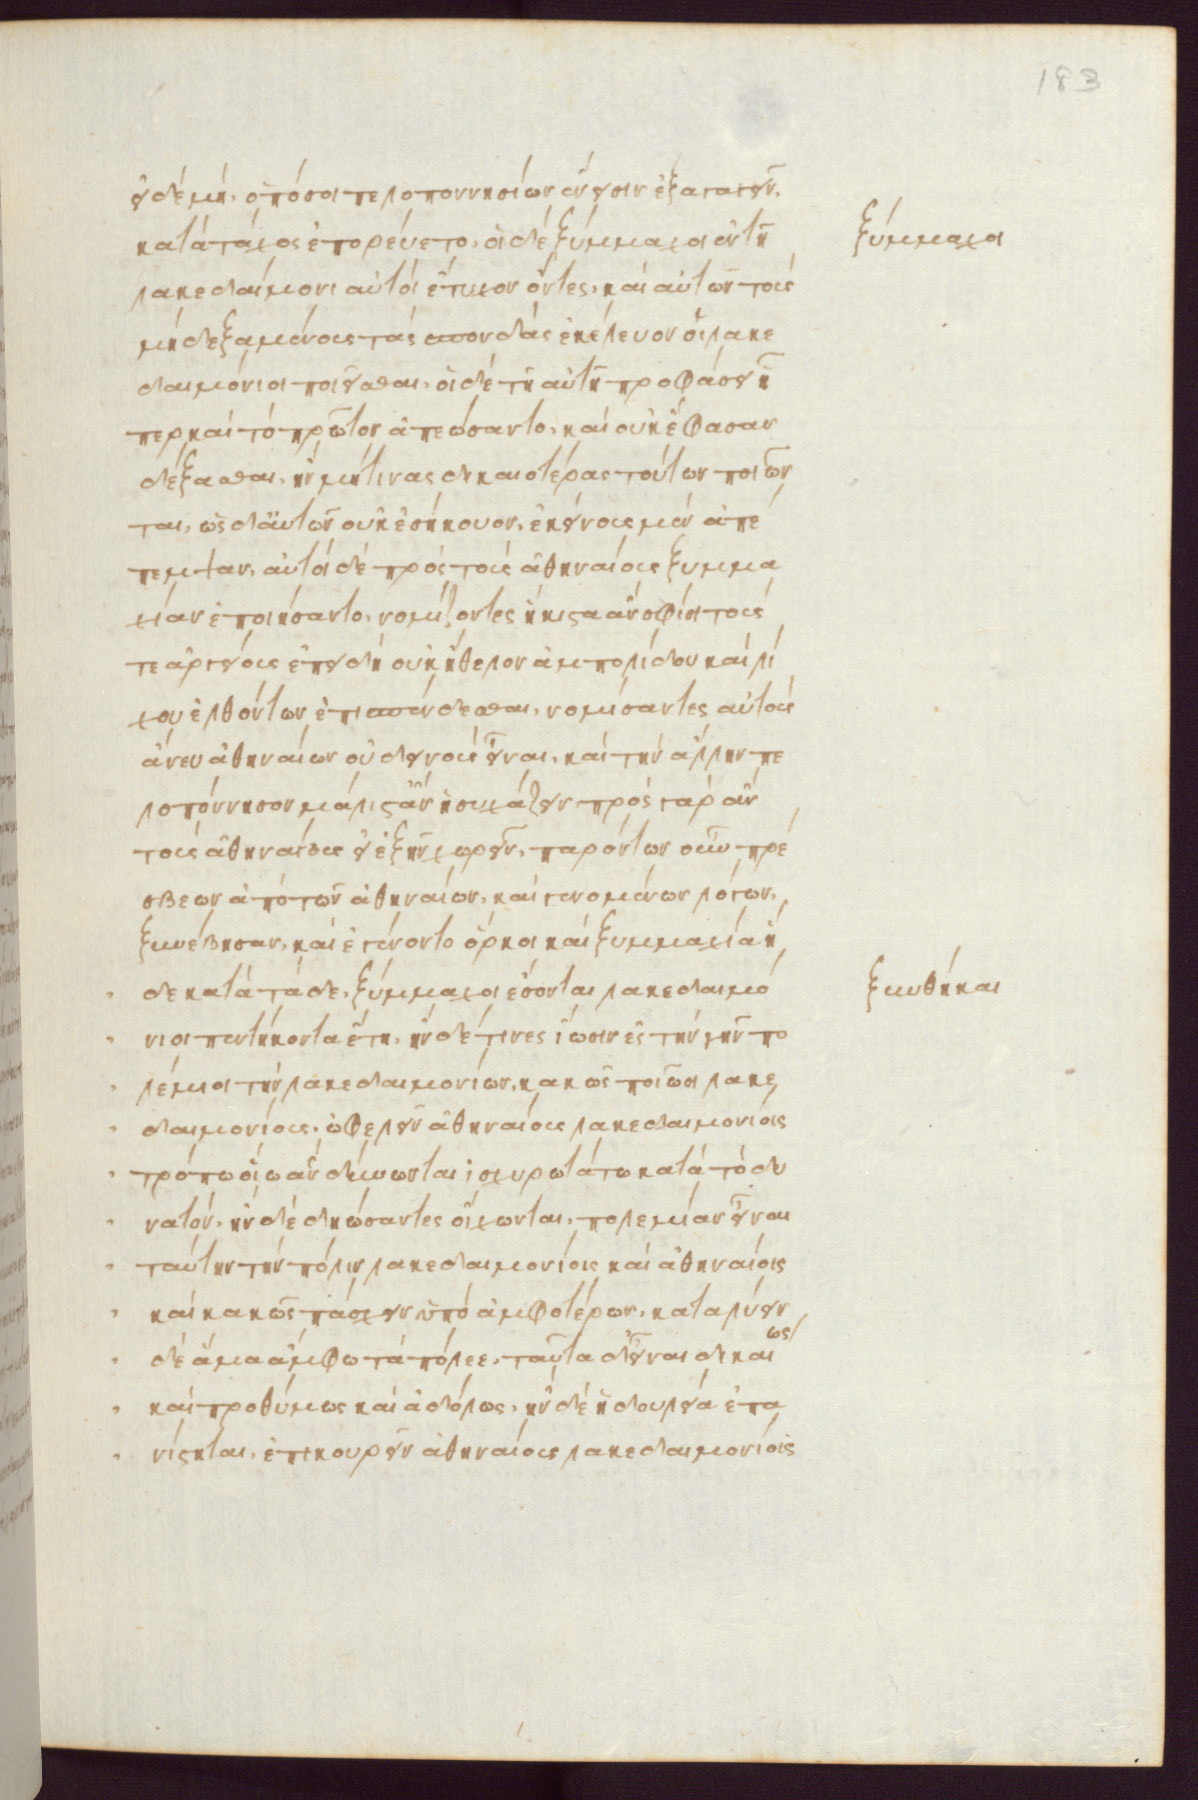 183
εἰ δὲ μή, ὁπόσοι πελοποννησίων ἔνεισιν ἐξαγαγεῖν,
κατὰ τάχος ἐπορεύετο, οἱ δὲ ξύμμαχοι ἐν τῆ
ξύμμαχοι
λακεδαίμονι αὐτοὶ ἔτυχον ὄντες, καὶ αὐτῶν τοὺς
μὴ δεξαμένους τὰς σπονδὰς ἐκέλευον οἱ λακε
δαιμόνιοι ποιεῖσθαι, οἱ δὲ τῆ αὐτῆ προφάσει ἧ
περ καὶ τὸ πρῶτον ἀπεώσαντο, καὶ οὐκ ἔφασαν
δέξασθαι, ἢν μή τινας δικαιοτέρας τούτων ποιῶν
ται, ὡς δ' αὐτῶν οὐκ ἐσήκουον, ἐκείνους μὲν ἀπέ
πεμψαν, αὐτοὶ δὲ πρὸς τοὺς ἀθηναίους ξυμμα
χίαν ἐποιήσαντο, νομίζοντες ἥκιστα ἂν σφίσι τούς
τε ἀργείους ἐπειδὴ οὐκ ἤθελον ἀμπολίδου καὶ λί
χου ἐλθόντων ἐπισπένδεσθαι, νομίσαντες αὐτοὺς
ἄνευ ἀθηναίων οὐ δεινοὺς εἶναι, καὶ τὴν ἄλλην πε
λοπόννησον μάλιστ' ἂν ἡσυχάζειν πρὸς γὰρ ἂν
τοὺς ἀθηναίους εἰ ἐξῆν χωρεῖν, παρόντων οὖν πρέ
σβεων ἀπὸ τῶν ἀθηναίων, καὶ γενομένων λόγων,
ξυνέβησαν, καὶ ἐγένοντο ὅρκοι καὶ ξυμμαχία ἥ
δε κατὰ τάδε, ξύμμαχοι ἔσονται λακεδαιμό
ξυνθῆκαι
νιοι πεντήκοντα ἔτη, ἢν δέ τινες ἴωσιν ἐς τὴν γῆν πο
λέμιοι τὴν λακεδαιμονίων, κακῶς ποιῶσι λακε
δαιμονίους, ὠφελεῖν ἀθηναίους λακεδαιμονίοις
τρόπω ὁίω ἂν δύνωνται ἰσχυρωτάτω κατὰ τὸ δυ
νατόν, ἢν δὲ δηώσαντες οἴχωνται, πολεμίαν εἶναι
ταύτην τὴν πόλιν λακεδαιμονίοις καὶ ἀθηναίοις
καὶ κακῶς πάσχειν ὑπὸ ἀμφοτέρων, καταλύειν
δὲ ἅμα ἄμφω τὰ πόλεε, ταῦτα δ' εἶναι δικαίως
καὶ προθύμως καὶ ἀδόλως, ἢν δὲ ἡ δουλεία ἐπα
νίστηται, ἐπικουρεῖν ἀθηναίους λακεδαιμονίοις